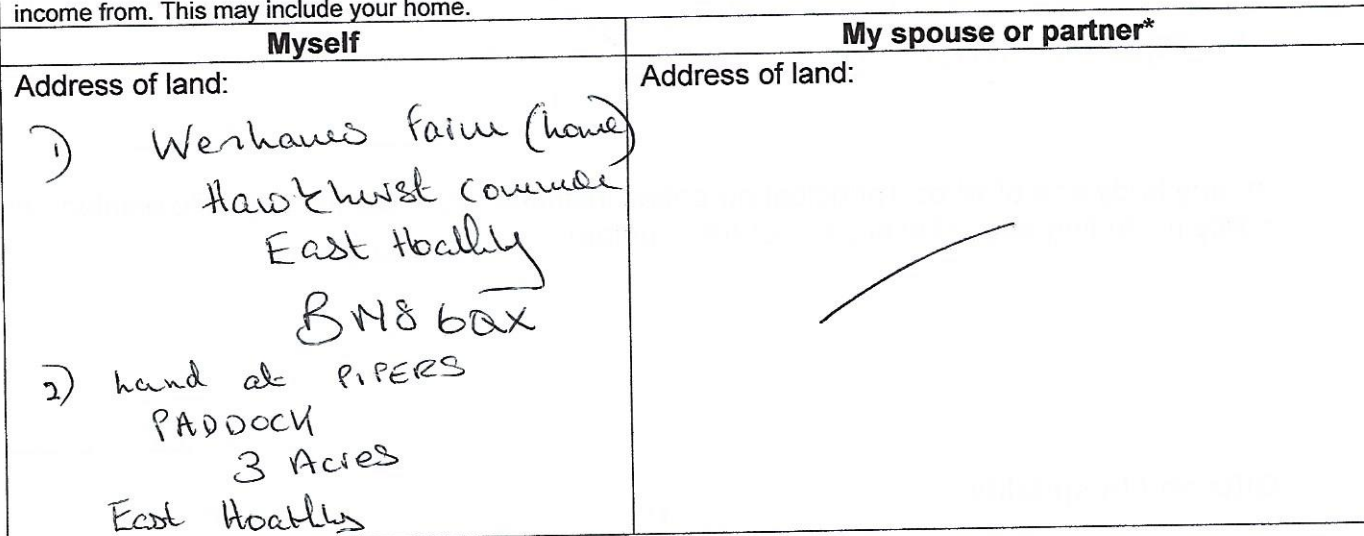 income from. This may include your home.
Myself
My spouse or partner*
Address of land:
1) Farm (home)
Hawkhurst common
East Hoathly
BN8 6QX
2) Land at PIPERS
PADDOCK
3 Acres
East Hoathly
Address of land: